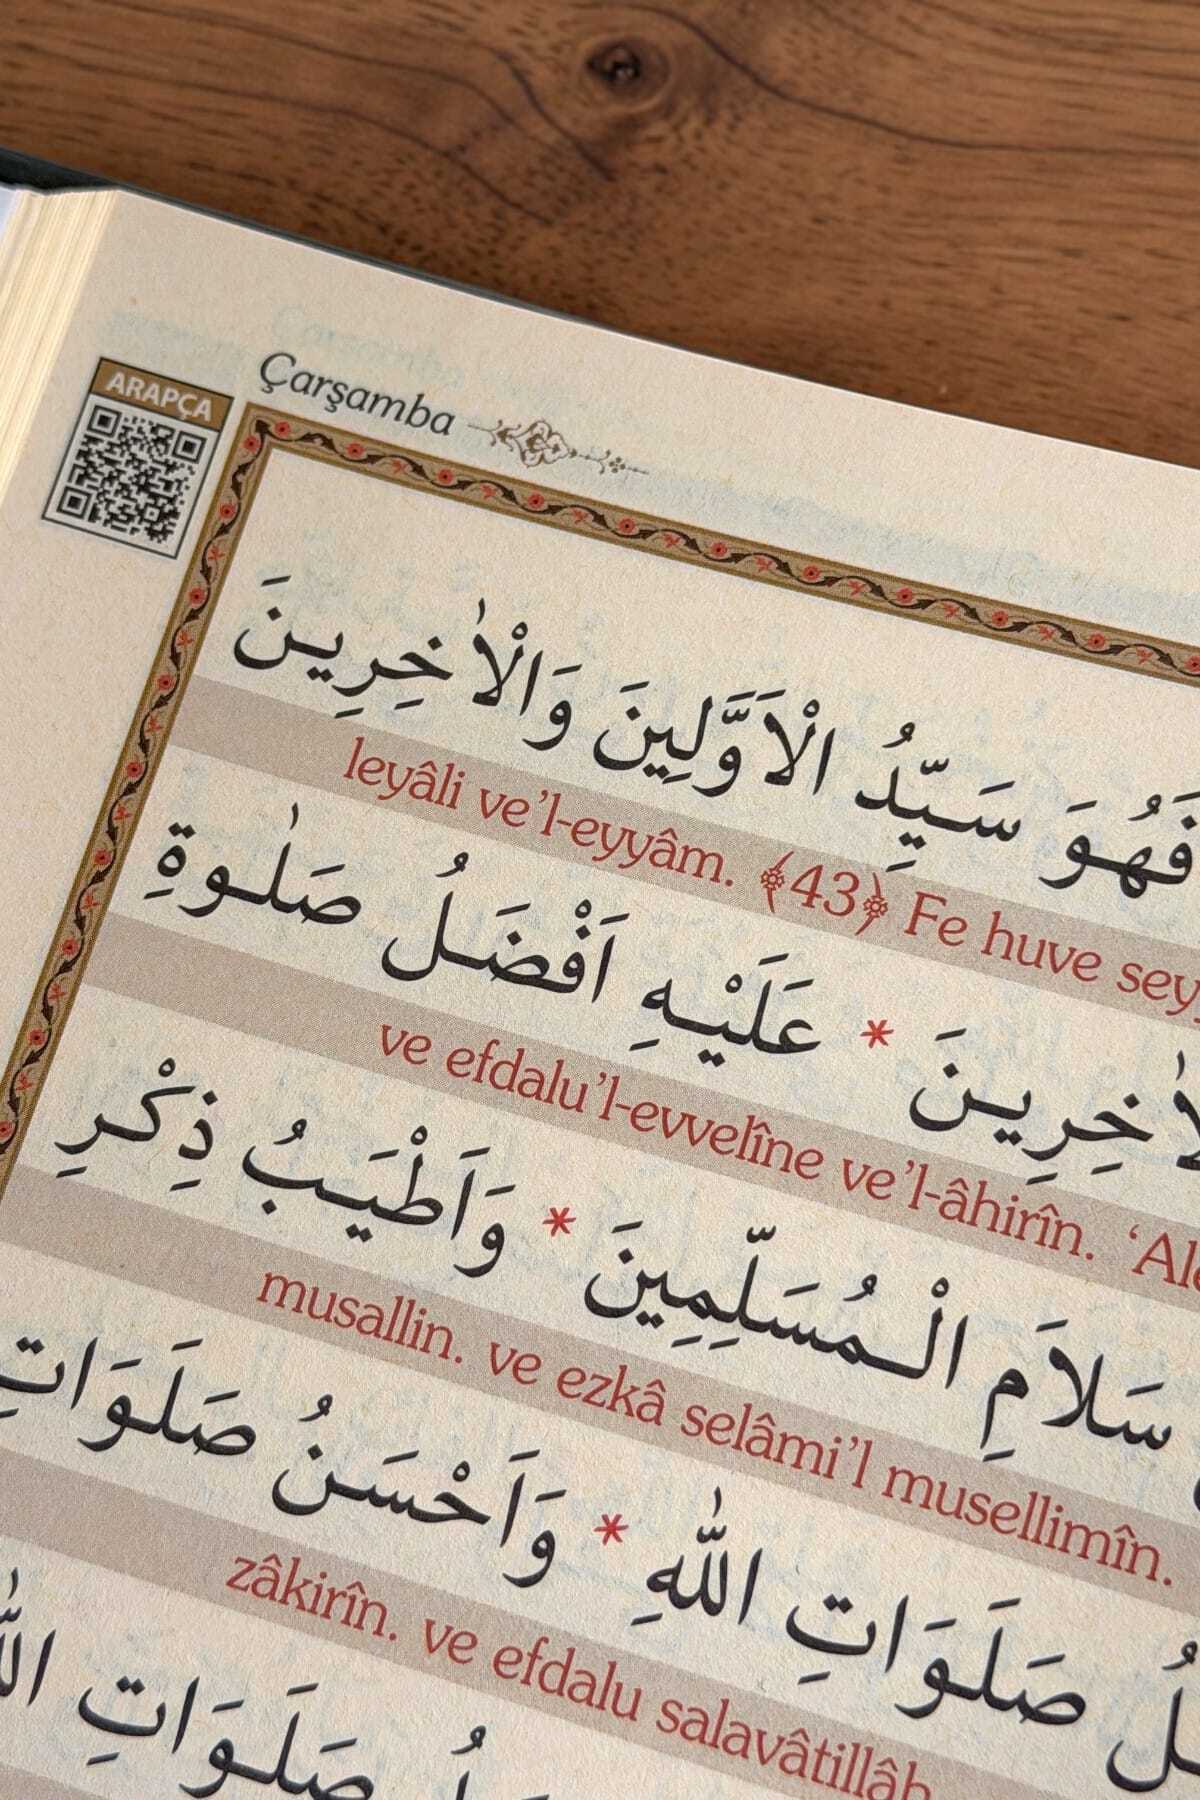 Çarşamba
ARAPÇA
فَهُوَ سَيِّدُ الْاَوَّلِينَ وَالْاٰخِرِينَ
leyâli ve’l-eyyâm. ﴾43﴿ Fe huve
عَلَيْهِ اَفْضَلُ صَلٰوةِ
ve efdalu’l-evvelîne ve’l-âhirîn.
سَلَامِ الْمُسَلِّمِينَ * وَاَطْيَبُ ذِكْرِ
musallin. ve ezkâ selâmi’l musellimîn.
صَلَوَاتِ اللّٰهِ * وَاَحْسَنُ صَلَوَاتِ
zâkirîn. ve efdalu salavâtillâh
صَلَوَاتِ